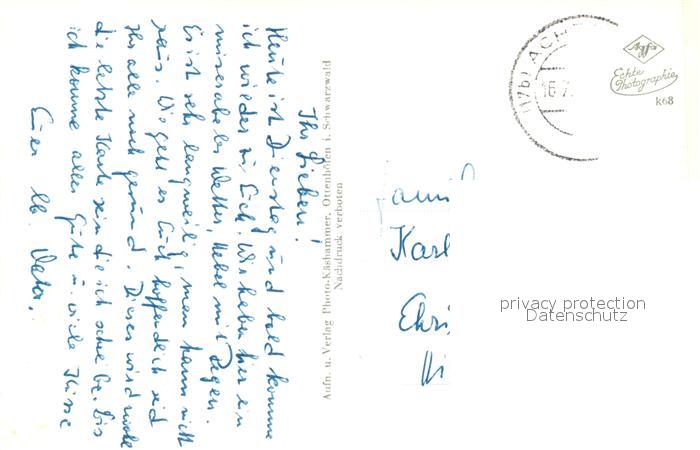 Ihr Lieben!
Heute ist Dienstag und bald komme
ich wieder zu Euch. Wir haben hier ein
miserables Wetter, Nebel mit Regen.
Es ist sehr langweilig, man kann nicht
raus. Wie geht es Euch hoffendlich seid
Ihr alle noch gesund. Dieses wird wohl
die letzte Karte sein die ich schreibe. Bis
ich komme alles Gute u. viele Küsse
Euer lb. Vater.
Aufn. u. Verlag Photo-Käshammer, Ottenhöfen i. Schwarzwald
Nachdruck verboten
(17b) ACH
16.7.
Agfa
Echte
Photographie
k68
Fami
Karl
privacy protection
Datenschutz